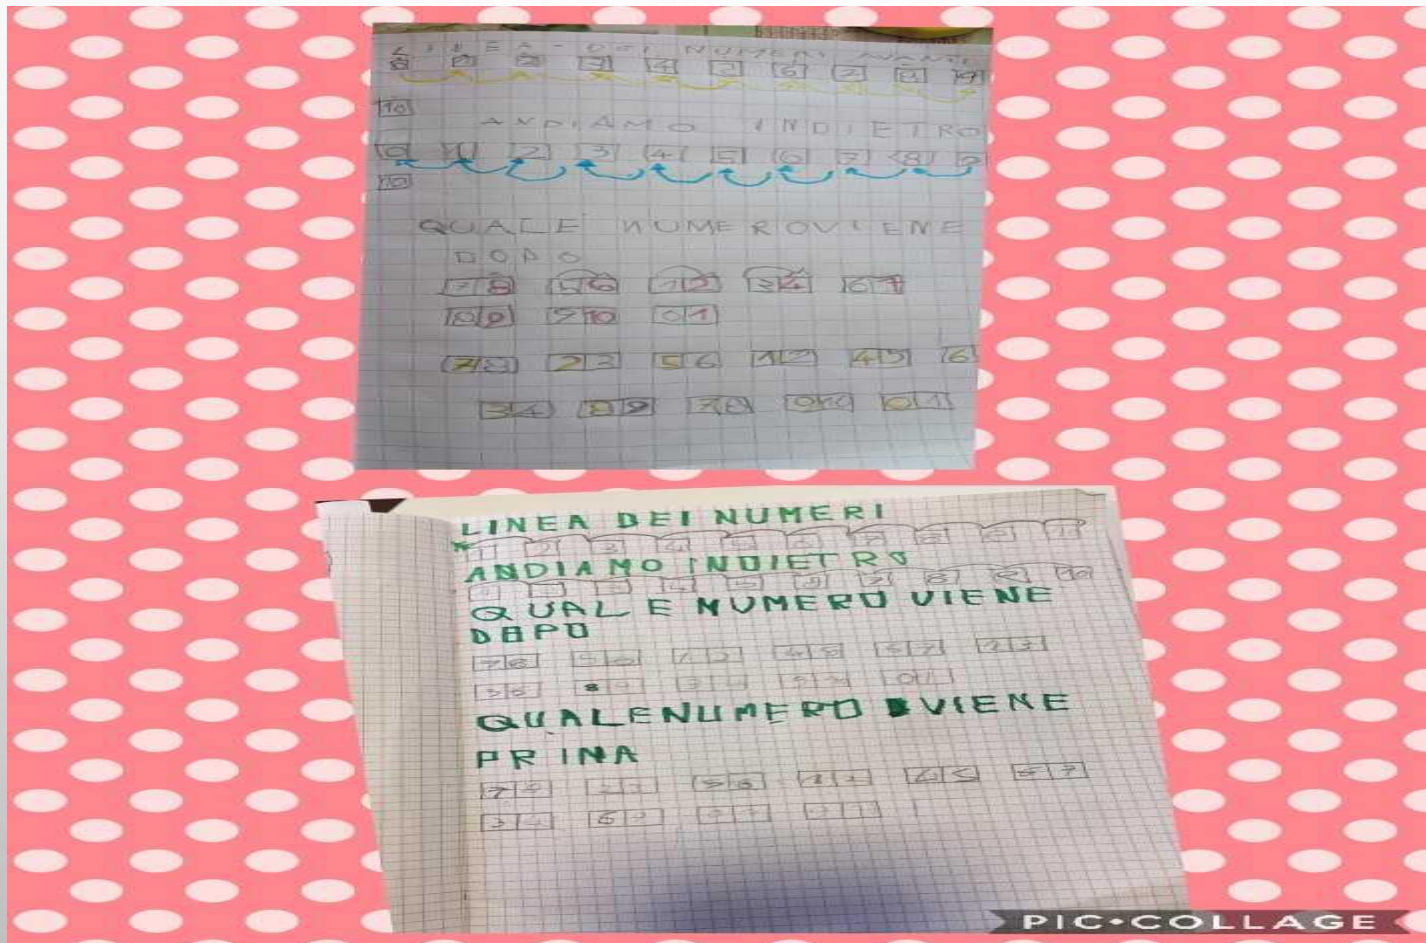 LINEA-DEI NUMERI AVANTI
0 1 2 3 4 5 6 7 8 9
10
ANDIAMO INDIETRO
0 1 2 3 4 5 6 7 8 9
10
QUALE NUMERO VIENE
DOPO
7 8 5 6 1 2 3 4 6 7
8 9 9 10 0 1
7 8 2 3 5 6 1 2 4 5 6
3 4 8 9 7 8 0 1
LINEA DEI NUMERI
1 2 3 4 5 6 7 8 9 10
ANDIAMO INDIETRO
1 2 3 4 5 6 7 8 9 10
QUALE NUMERO VIENE
DAPO
7 8 5 6 1 2 4 5 6 7 2 3
8 9 0 1
QUALENUMERO VIENE
PRINA
5 6 1 2 4 5 6 7
3 4
PIC•COLLAGE